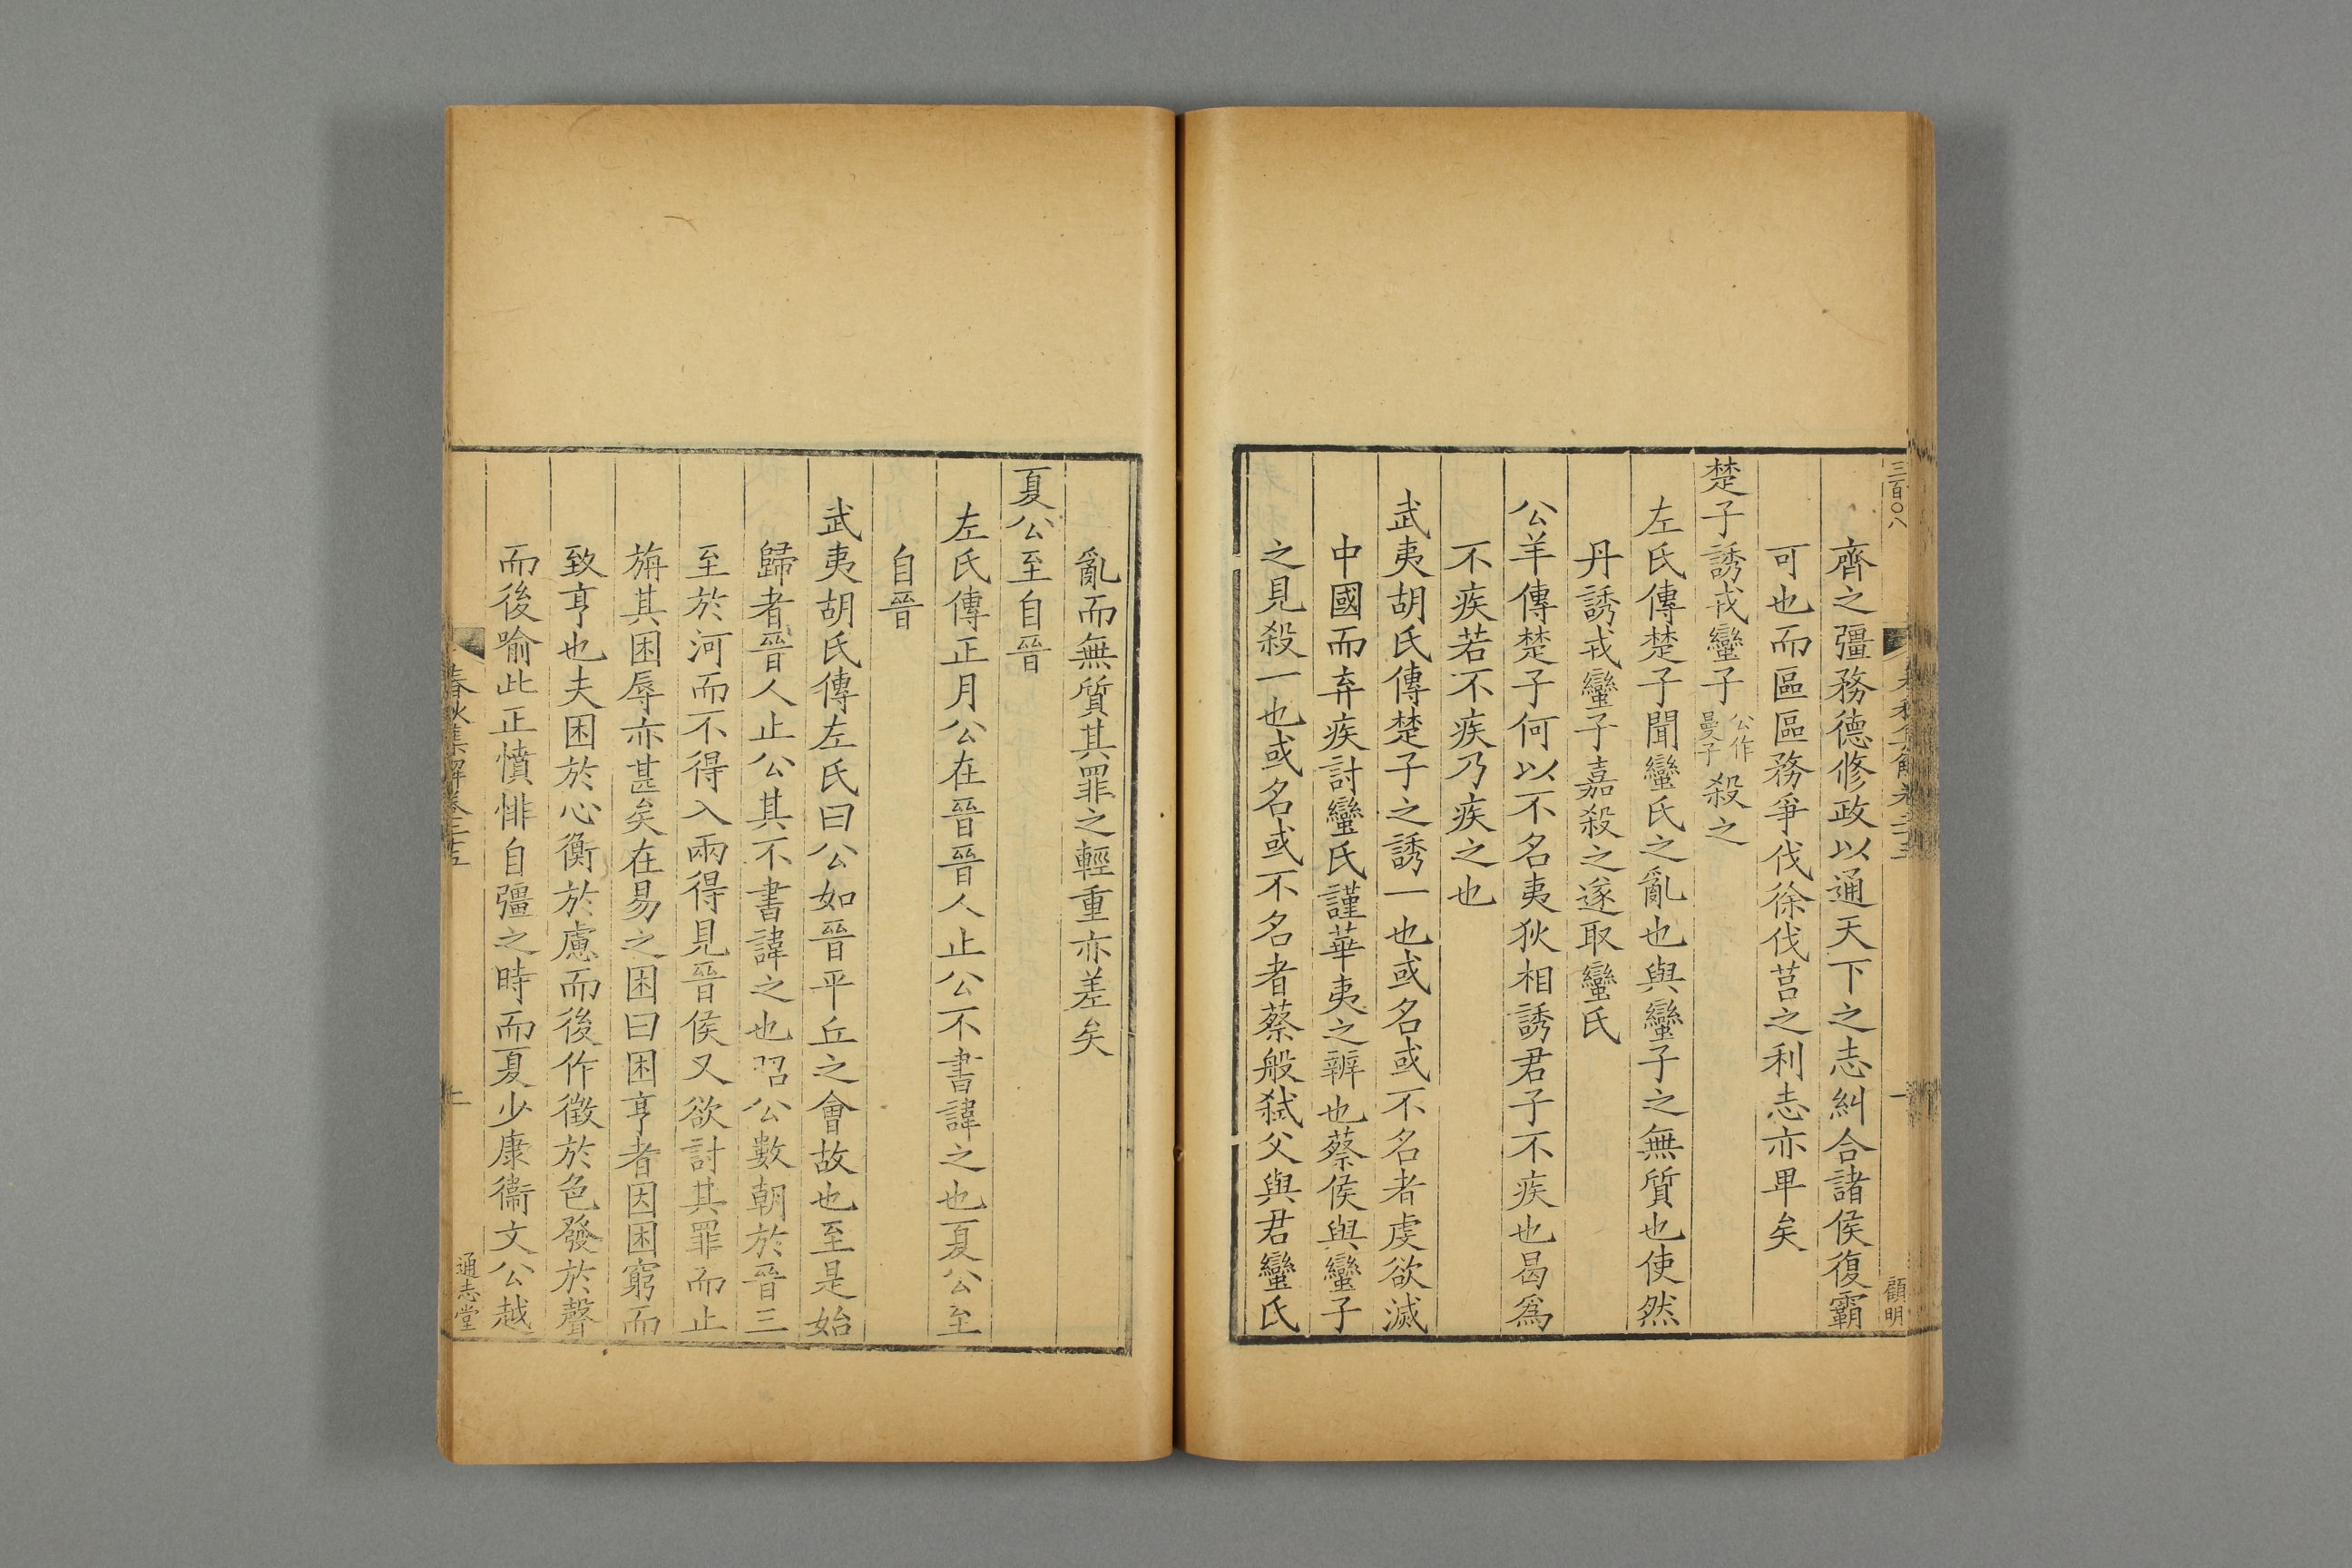 三百〇八
顧明
齊之彊務德修政以通天下之志糾合諸侯復霸
可也而區區務爭伐徐伐莒之利志亦畢矣
楚子誘戎蠻子公作曼子殺之
左氏傳楚子聞蠻氏之亂也與蠻子之無質也使然
丹誘戎蠻子嘉殺之遂取蠻氏
公羊傳楚子何以不名夷狄相誘君子不疾也曷爲
不疾若不疾乃疾之也
武夷胡氏傳楚子之誘一也或名或不名者虔欲滅
中國而弃疾討蠻氏謹華夷之辨也蔡侯與蠻子
之見殺一也或名或不名者蔡般弑父與君蠻氏
亂而無質其罪之輕重亦差矣
夏公至自晉
左氏傳正月公在晉晉人止公不書諱之也夏公至
自晉
武夷胡氏傳左氏曰公如晉平丘之會故也至是始
歸者晉人止公其不書諱之也昭公數朝於晉三
至於河而不得入兩得見晉侯又欲討其罪而止
旃其困辱亦甚矣在易之困曰困亨者因困窮而
致亨也夫困於心衡於慮而後作徵於色發於聲
而後喻此正憤悱自彊之時而夏少康衞文公越
春秋集解卷二十五
通志堂